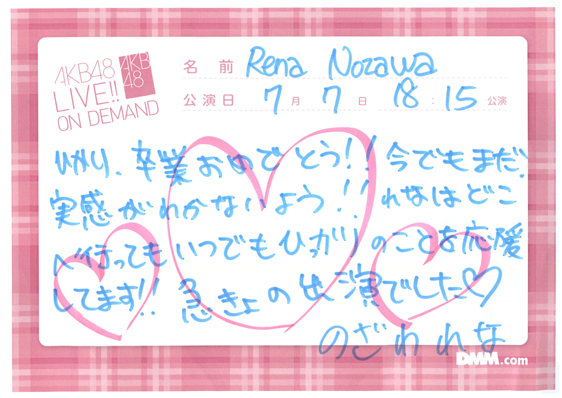 AKB48
LIVE!!
ON DEMAND
AKB
48
名前 Rena Nozawa
公演日 7月7日 18:15公演
ひかり、卒業おめでとう!! 今でもまだ、
実感がわかないよう!! れなはどこ
へ行ってもいつでもひっかりのことを応援
してます!! 急きょの出演でした♡
のざわれな
DMM.com